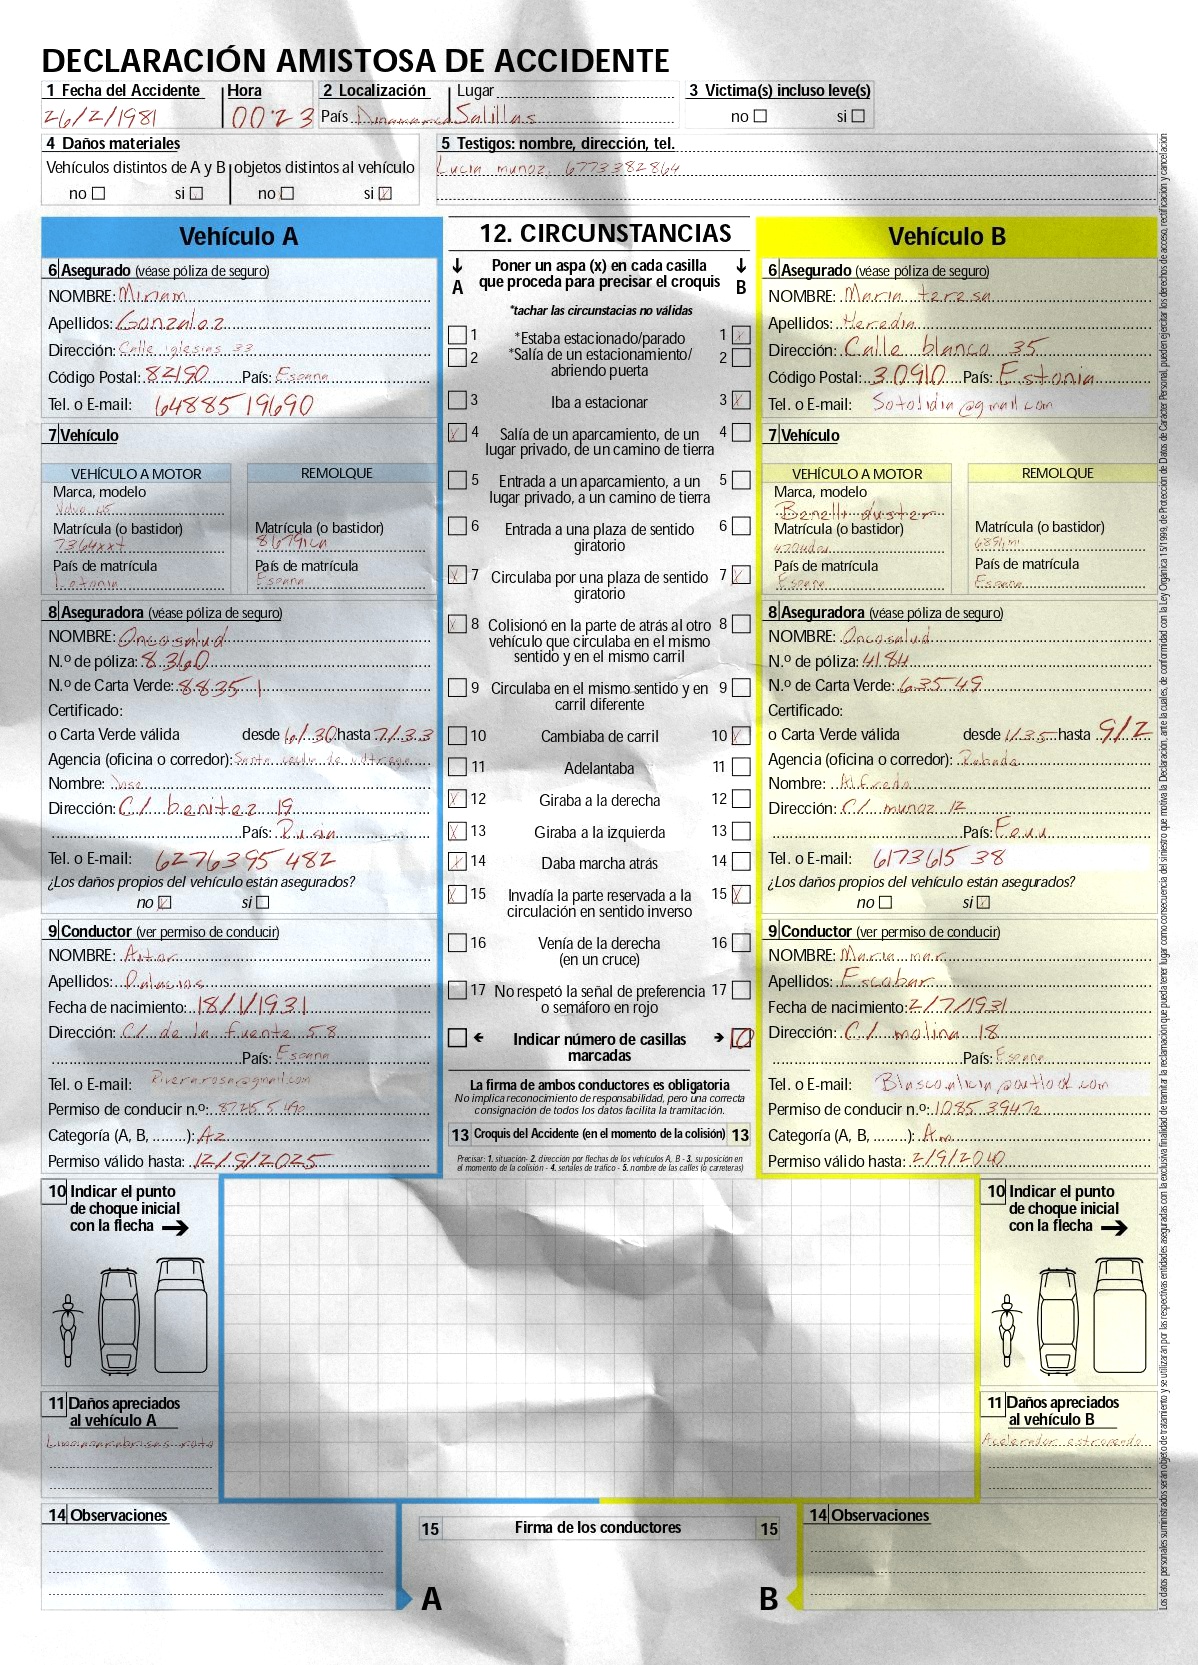 DECLARACIÓN AMISTOSA DE ACCIDENTE
1 Fecha del Accidente Hora 2 Localización Lugar 3 Victima(s) incluso leve(s)
26/2/1981 00:23 País Dinamarca Salillas no si
4 Daños materiales 5 Testigos: nombre, dirección, tel.
Vehículos distintos de A y B objetos distintos al vehículo Lucia munoz, 6773382864
no si no si
Vehículo A
6 Asegurado (véase póliza de seguro)
NOMBRE: Miriam
Apellidos: Gonzalez
Dirección: Calle iglesias 33
Código Postal: 82190 País: Espana
Tel. o E-mail: 6488519690
7 Vehículo
VEHÍCULO A MOTOR REMOLQUE
Marca, modelo
Matrícula (o bastidor) Matrícula (o bastidor)
7364xxt
País de matrícula País de matrícula
Letonia Espana
8 Aseguradora (véase póliza de seguro)
NOMBRE: Oncosalud
N.º de póliza: 8360
N.º de Carta Verde: 88351
Certificado:
o Carta Verde válida desde 6/30 hasta 7/33
Agencia (oficina o corredor):
Nombre: Jose
Dirección: C/ benitez 19
País: Rusia
Tel. o E-mail: 6276395482
¿Los daños propios del vehículo están asegurados?
no si
9 Conductor (ver permiso de conducir)
NOMBRE: Aitor
Apellidos: Palacios
Fecha de nacimiento: 18/1/1931
Dirección: C/ de la fuente 58
País: Espana
Tel. o E-mail: Rivera.rosa@gmail.com
Permiso de conducir n.º:
Categoría (A, B, ........): A2
Permiso válido hasta: 12/9/2025
12. CIRCUNSTANCIAS
A Poner un aspa (x) en cada casilla que proceda para precisar el croquis B
*tachar las circunstacias no válidas
1 *Estaba estacionado/parado 1
2 *Salía de un estacionamiento/ 2
abriendo puerta
3 Iba a estacionar 3
4 Salía de un aparcamiento, de un 4
lugar privado, de un camino de tierra
5 Entrada a un aparcamiento, a un 5
lugar privado, a un camino de tierra
6 Entrada a una plaza de sentido 6
giratorio
7 Circulaba por una plaza de sentido 7
giratorio
8 Colisionó en la parte de atrás al otro 8
vehículo que circulaba en el mismo
sentido y en el mismo carril
9 Circulaba en el mismo sentido y en 9
carril diferente
10 Cambiaba de carril 10
11 Adelantaba 11
12 Giraba a la derecha 12
13 Giraba a la izquierda 13
14 Daba marcha atrás 14
15 Invadía la parte reservada a la 15
circulación en sentido inverso
16 Venía de la derecha 16
(en un cruce)
17 No respetó la señal de preferencia 17
o semáforo en rojo
Indicar número de casillas 10
marcadas
La firma de ambos conductores es obligatoria
No implica reconocimiento de responsabilidad, pero una correcta
consignación de todos los datos facilita la tramitación.
13 Croquis del Accidente (en el momento de la colisión) 13
Precisar: 1. situación- 2. dirección por flechas de los vehículos A, B - 3. su posición en
el momento de la colisión - 4. señales de tráfico - 5. nombre de las calles (o carreteras)
Vehículo B
6 Asegurado (véase póliza de seguro)
NOMBRE: Maria teresa
Apellidos: Heredia
Dirección: Calle blanco 35
Código Postal: 30910 País: Estonia
Tel. o E-mail: Sotolidia@gmail.com
7 Vehículo
VEHÍCULO A MOTOR REMOLQUE
Marca, modelo
Benelli duster
Matrícula (o bastidor) Matrícula (o bastidor)
País de matrícula País de matrícula
Espana Espana
8 Aseguradora (véase póliza de seguro)
NOMBRE: Oncosalud
N.º de póliza: 4184
N.º de Carta Verde: 63549
Certificado:
o Carta Verde válida desde 1/35 hasta 9/2
Agencia (oficina o corredor): Rabade
Nombre: Alfredo
Dirección: C/ munoz 12
País:
Tel. o E-mail: 617361538
¿Los daños propios del vehículo están asegurados?
no si
9 Conductor (ver permiso de conducir)
NOMBRE: Maria mar
Apellidos: Escobar
Fecha de nacimiento: 2/7/1931
Dirección: C/ molina 18
País: Espana
Tel. o E-mail: Blasco.alicia@outlook.com
Permiso de conducir n.º: 108539472
Categoría (A, B, ........): Am
Permiso válido hasta: 2/9/2040
10 Indicar el punto
de choque inicial
con la flecha
11 Daños apreciados
al vehículo A
Limpiaparabrisas roto
10 Indicar el punto
de choque inicial
con la flecha
11 Daños apreciados
al vehículo B
Acelerador estropeado
14 Observaciones
15 Firma de los conductores 15
A B
14 Observaciones
Los datos personales suministrados serán objeto de tratamiento y se utilizaran por las respectivas entidades aseguradas con la exclusiva finalidad de tramitar la reclamación que pueda tener lugar como consecuencia del siniestro que motiva la Declaración, ante la cuales, de conformidad con la Ley Orgánica 15/1999, de Protección de Datos de Carácter Personal, pueden ejercitar los derechos de acceso, rectificación y cancelación